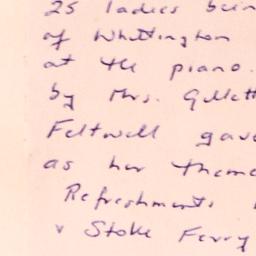 25 ladies bein
of Whittington
at the piano.
by Mrs. Gillett
Feltwell gave
as her theme
Refreshments
v Stoke Ferry